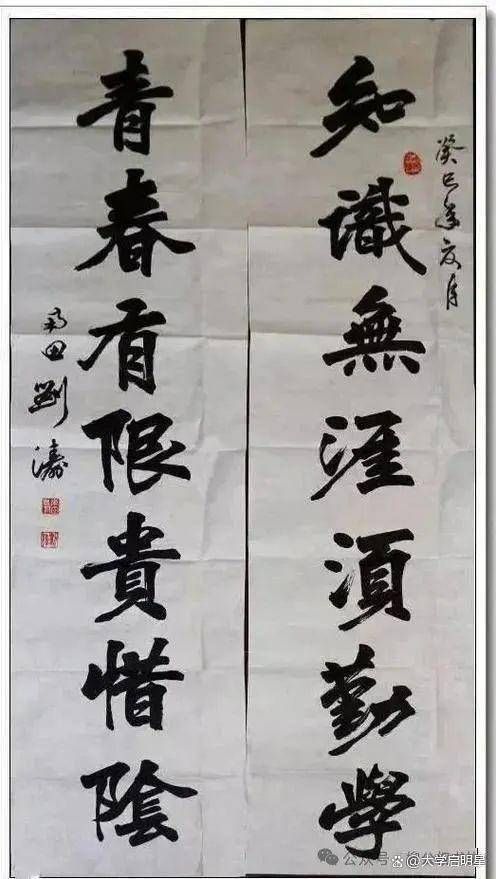 癸巳年夏月
知識無涯須勤學
青春有限貴惜陰
雨田劉濤
公众号
@大学启明星